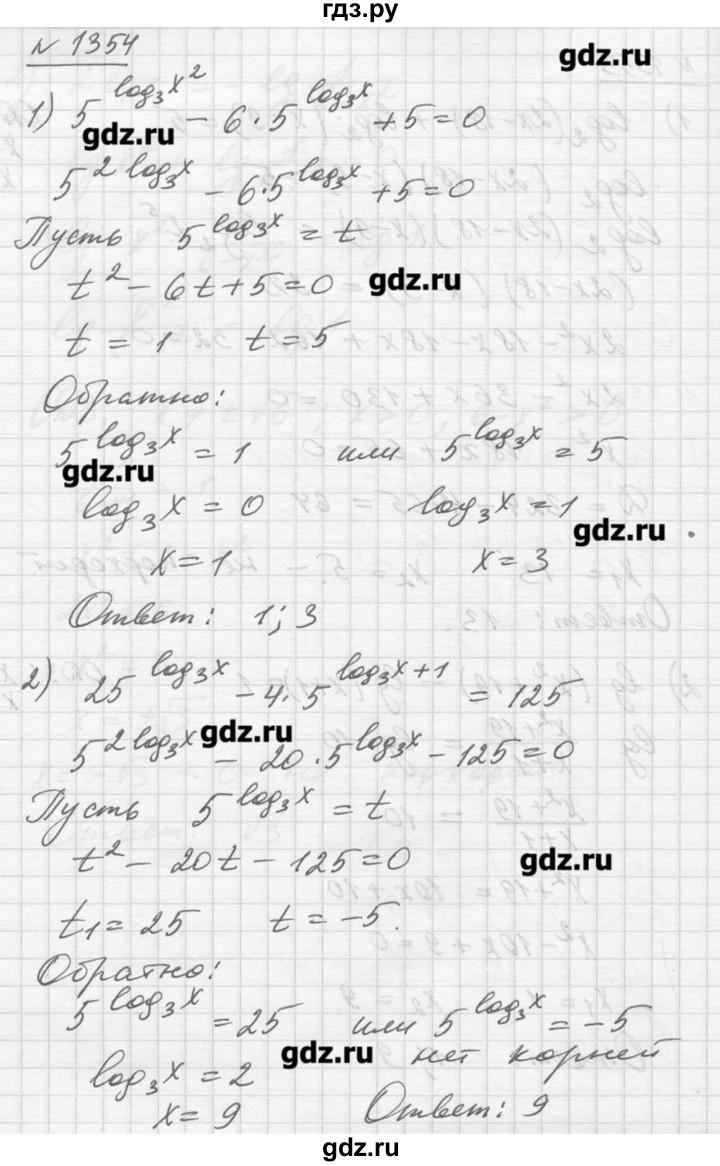 гдз.ру
№ 1354
gdz.ru
1) 5^{log₃x²} - 6·5^{log₃x} + 5 = 0
gdz.ru
5^{2 log₃x} - 6·5^{log₃x} + 5 = 0
Пусть 5^{log₃x} = t
t² - 6t + 5 = 0 gdz.ru
t = 1 t = 5
Обратно:
5^{log₃x} = 1 или 5^{log₃x} = 5
gdz.ru
log₃x = 0 log₃x = 1
gdz.ru
x = 1 x = 3
Ответ: 1; 3
2) 25^{log₃x} - 4·5^{log₃x+1} = 125
gdz.ru
5^{2 log₃x} - 20·5^{log₃x} - 125 = 0
Пусть 5^{log₃x} = t
t² - 20t - 125 = 0 gdz.ru
t₁ = 25 t = -5.
Обратно:
5^{log₃x} = 25 или 5^{log₃x} = -5
gdz.ru нет корней
log₃x = 2
x = 9 Ответ: 9
gdz.ru